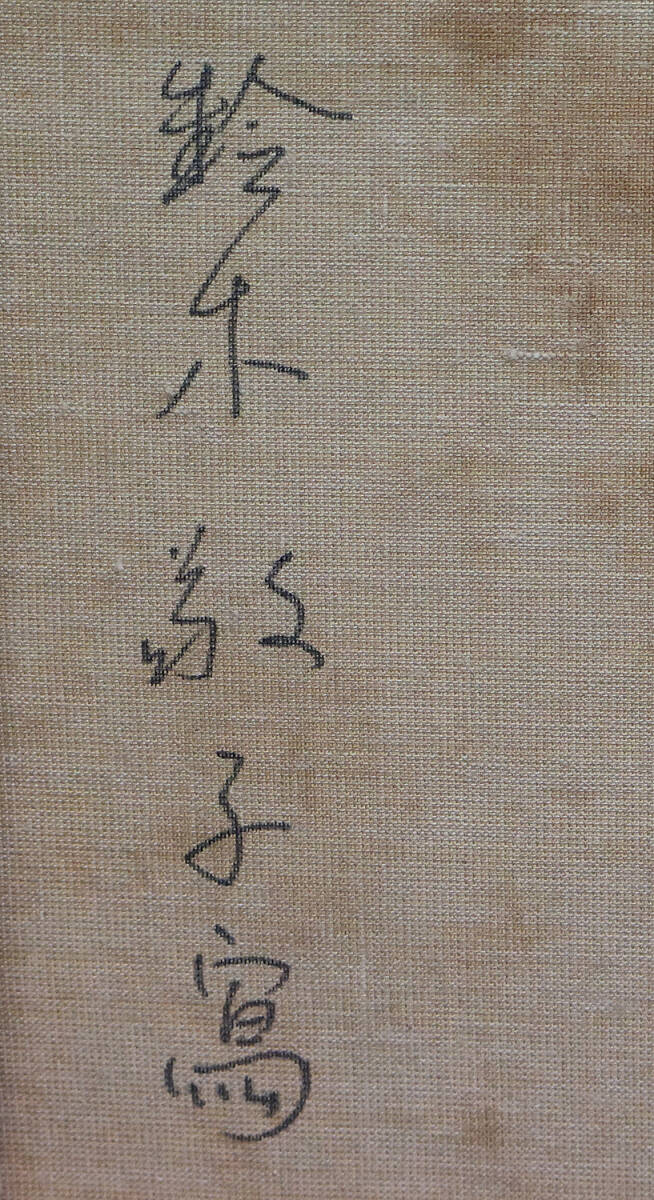 鈴木敬子寫